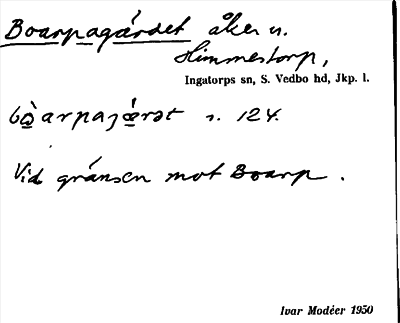 Boarpagärdet åker n.
Himmestorp,
Ingatorps sn, S. Vedbo hd, Jkp. l.
n. 124.
Vid gränsen mot Boarp.
Ivar Modéer 1950